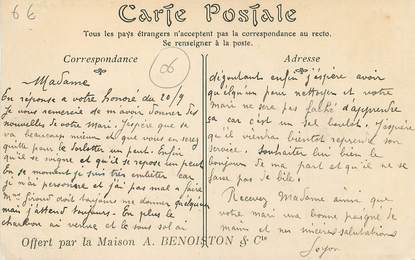 66
Carte Postale
Tous les pays étrangers n'acceptent pas la correspondance au recto.
Se renseigner à la poste.
Correspondance
06
Madame
En réponse a votre honoré du 20/9
Je vous remercie de m'avoir donner des
nouvelle de votre Mari. J'espère que sa
va beaucoup mieux et que vous en serez
quitte pour le dorlotter un peut. Enfin
qu'il se soigne et qu'il se repose un peut
En se moment je suis très embêter car
je n'ai personne et j'ai pas mal a faire
Mme Giroud doit toujours me donner quelqu'un
mais j'attend toujours. En plus le
charbon ai venue et le sous sol ai
Adresse
dégoutant enfin j'espère avoir
quelqu'un pour nettoyer et votre
Mari ne sera pas faché d'apprendre
sa car c'est un sal boulot. J'espère
qu'il viendra bientot reprendre son
service. Souhaiter lui bien le
bonjour de ma part et qu'il ne se
fasse pas de bile.
Recevez Madame ainsi que
votre mari une bonne poigné de
mains et mes sincères salutations
Offert par la Maison A. BENOISTON & Cie